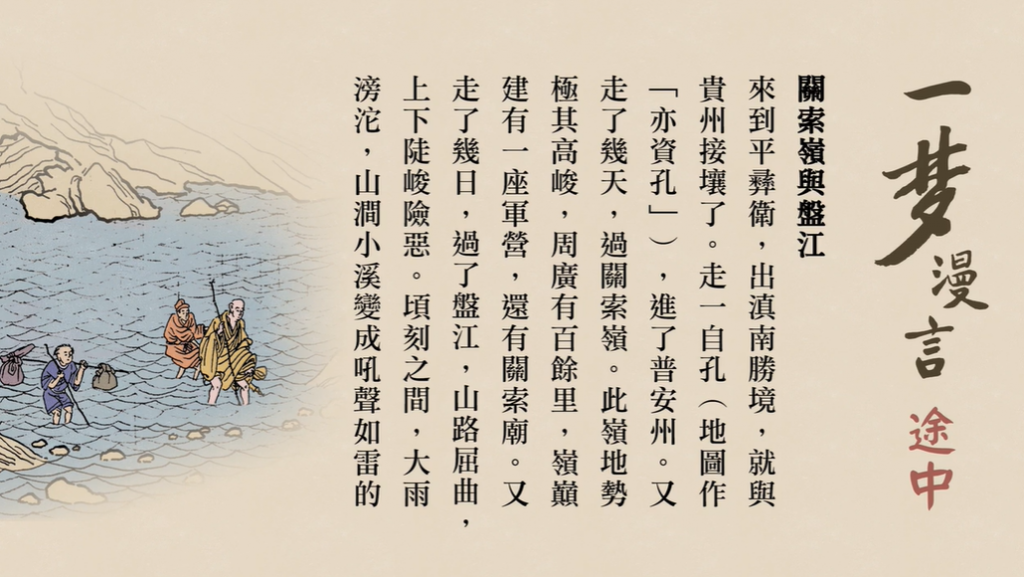 一梦漫言
途中
關索嶺與盤江
來到平彝衛，出滇南勝境，就與
貴州接壤了。走一自孔（地圖作
「亦資孔」），進了普安州。又
走了幾天，過關索嶺。此嶺地勢
極其高峻，周廣有百餘里，嶺巔
建有一座軍營，還有關索廟。又
走了幾日，過了盤江，山路屈曲，
上下陡峻險惡。頃刻之間，大雨
滂沱，山澗小溪變成吼聲如雷的